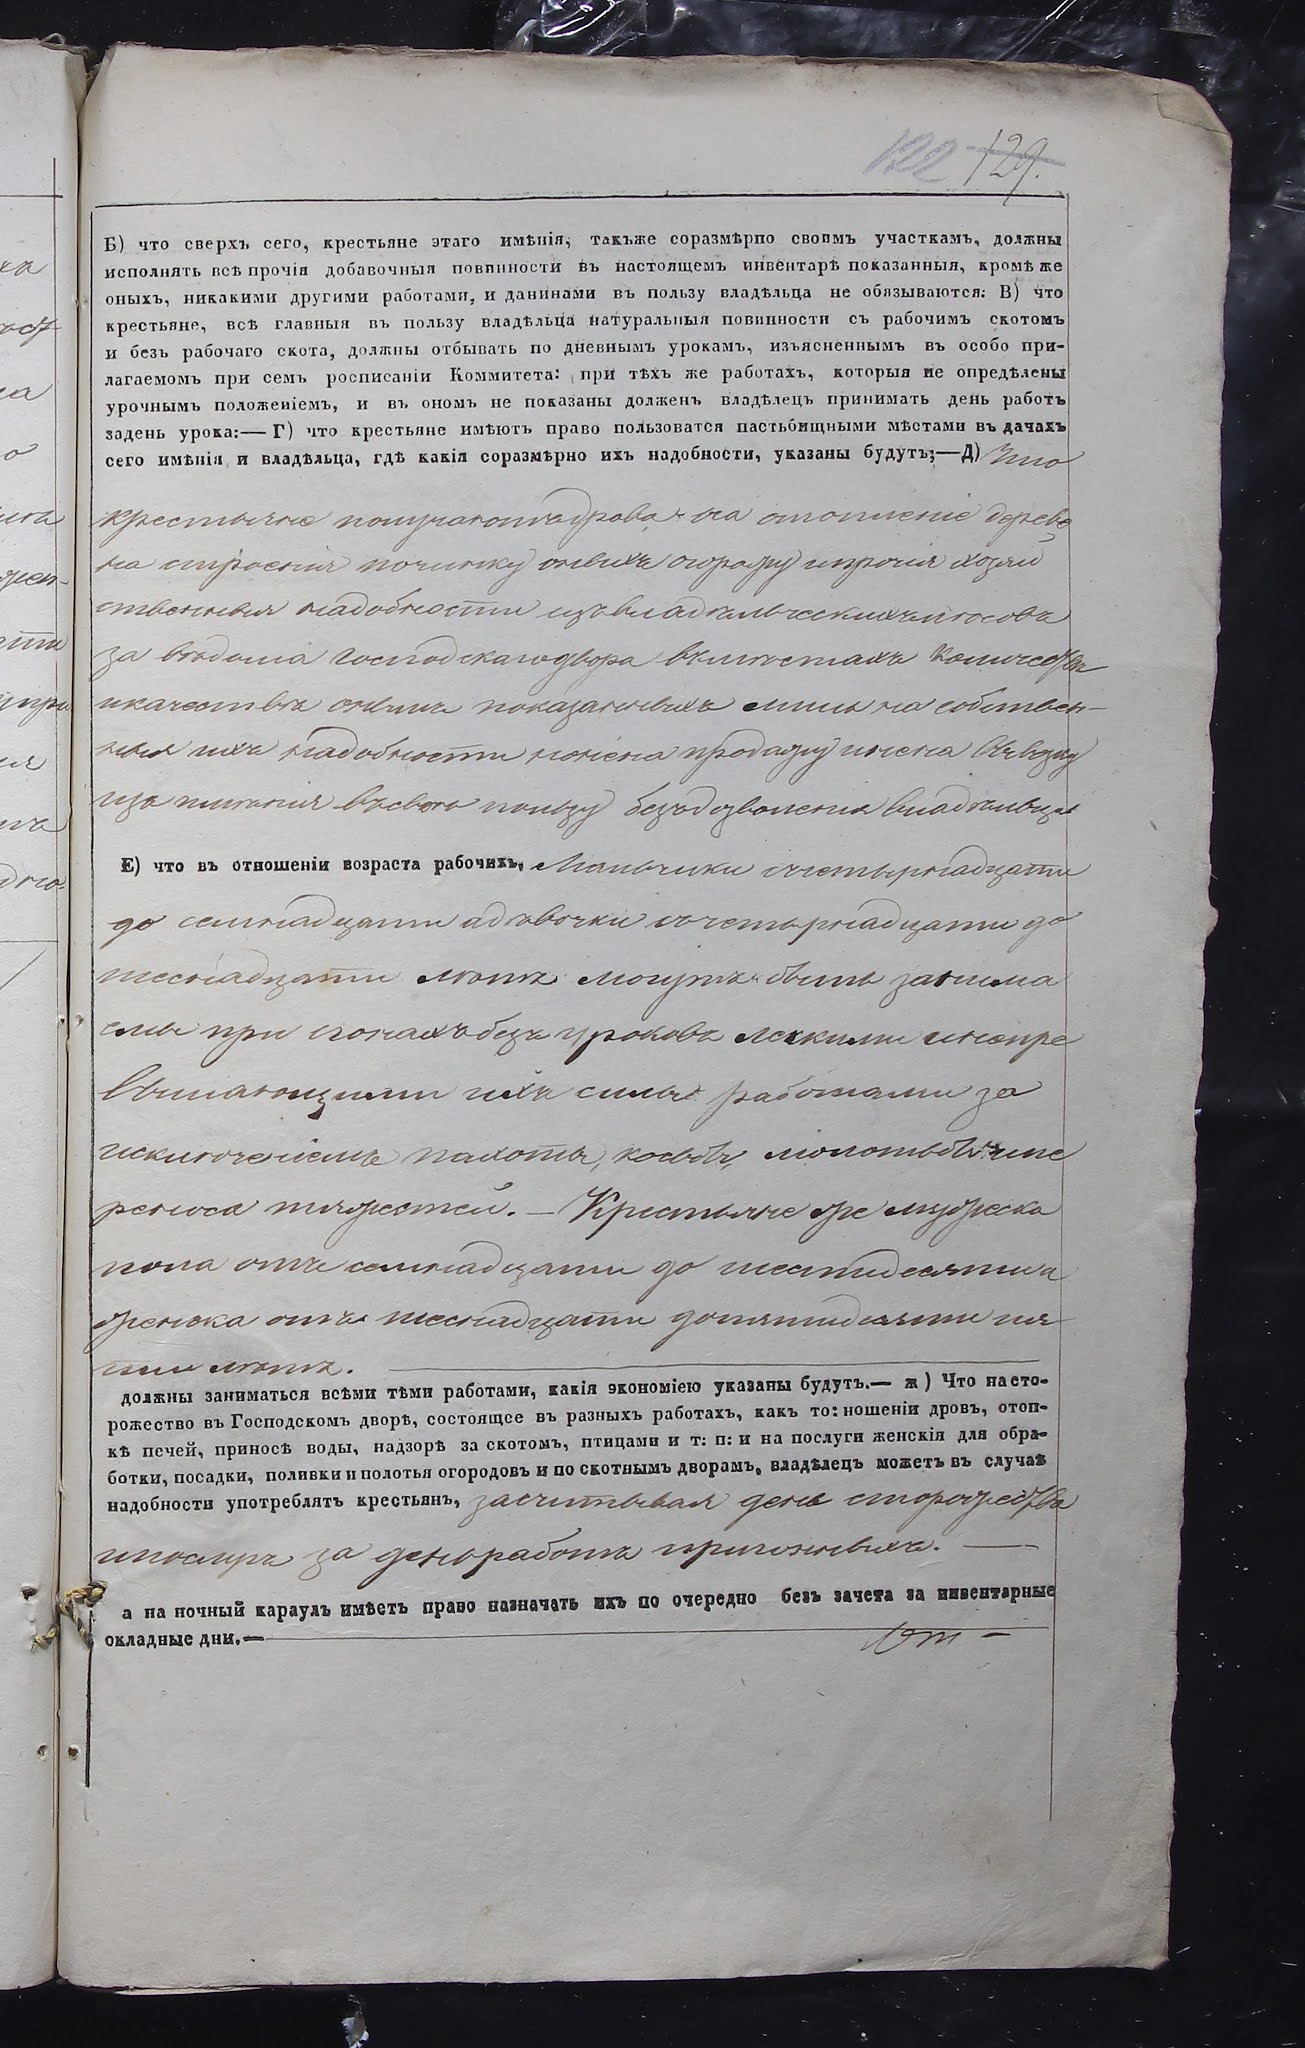 122 129.
Б) что сверхъ сего, крестьяне этаго имѣнія, такъже соразмѣрно своимъ участкамъ, должны
исполнять всѣ прочія добавочныя повинности въ настоящемъ инвентарѣ показанныя, кромѣ же
оныхъ, никакими другими работами, и данинами въ пользу владѣльца не обязываются: В) что
крестьяне, всѣ главныя въ пользу владѣльца натуральныя повинности съ рабочимъ скотомъ
и безъ рабочаго скота, должны отбывать по дневнымъ урокамъ, изъясненнымъ въ особо при-
лагаемомъ при семъ росписаніи Коммитета: при тѣхъ же работахъ, которыя не опредѣлены
урочнымъ положеніемъ, и въ ономъ не показаны долженъ владѣлецъ принимать день работъ
задень урока:— Г) что крестьяне имѣютъ право пользоватся пастьбищными мѣстами въ дачахъ
сего имѣнія и владѣльца, гдѣ какія соразмѣрно ихъ надобности, указаны будутъ;—Д) Что
крестьяне получаютъ дрова на отопленіе дерево
на строенія починку оныхъ огорожу и прочія хозяй
ственныя надобности изъ владѣльческихъ лѣсовъ
за вѣдома господскаго двора въ мѣстахъ количествѣ
и качествѣ онымъ показанныхъ лишь на собствен-
ныя ихъ надобности но не на продажу и не на вывозку
изъ имѣнія въ свою пользу безъ дозволенія владѣльца
Е) что въ отношеніи возраста рабочихъ, Мальчики съ четырнадцати
до семнадцати а дѣвочки съ четырнадцати до
шеснадцати лѣтъ могутъ быть занима
емы при гонахъ безъ уроковъ легкими и не пре
вышающими ихъ силы работами за
исключеніемъ пахоты, косьбы, молотьбы и пе
реноса тяжестей. — Крестьяне же мужеска
пола отъ семнадцати до шестидесяти а
женска отъ шеснадцати до пятидесяти пя
ти лѣтъ.
должны заниматься всѣми тѣми работами, какія экономіею указаны будутъ.— ж) Что на сто-
рожество въ Господскомъ дворѣ, состоящее въ разныхъ работахъ, какъ то: ношеніи дровъ, отоп-
кѣ печей, приносѣ воды, надзорѣ за скотомъ, птицами и т: п: и на послуги женскія для обра-
ботки, посадки, поливки и полотья огородовъ и по скотнымъ дворамъ, владѣлецъ можетъ въ случаѣ
надобности употреблять крестьянъ, засчитывая день сторожества
и послугъ за день работъ пригонныхъ. —
а на ночный караулъ имѣетъ право назначать ихъ по очередно безъ зачета за инвентарные
окладные дни.—
От —